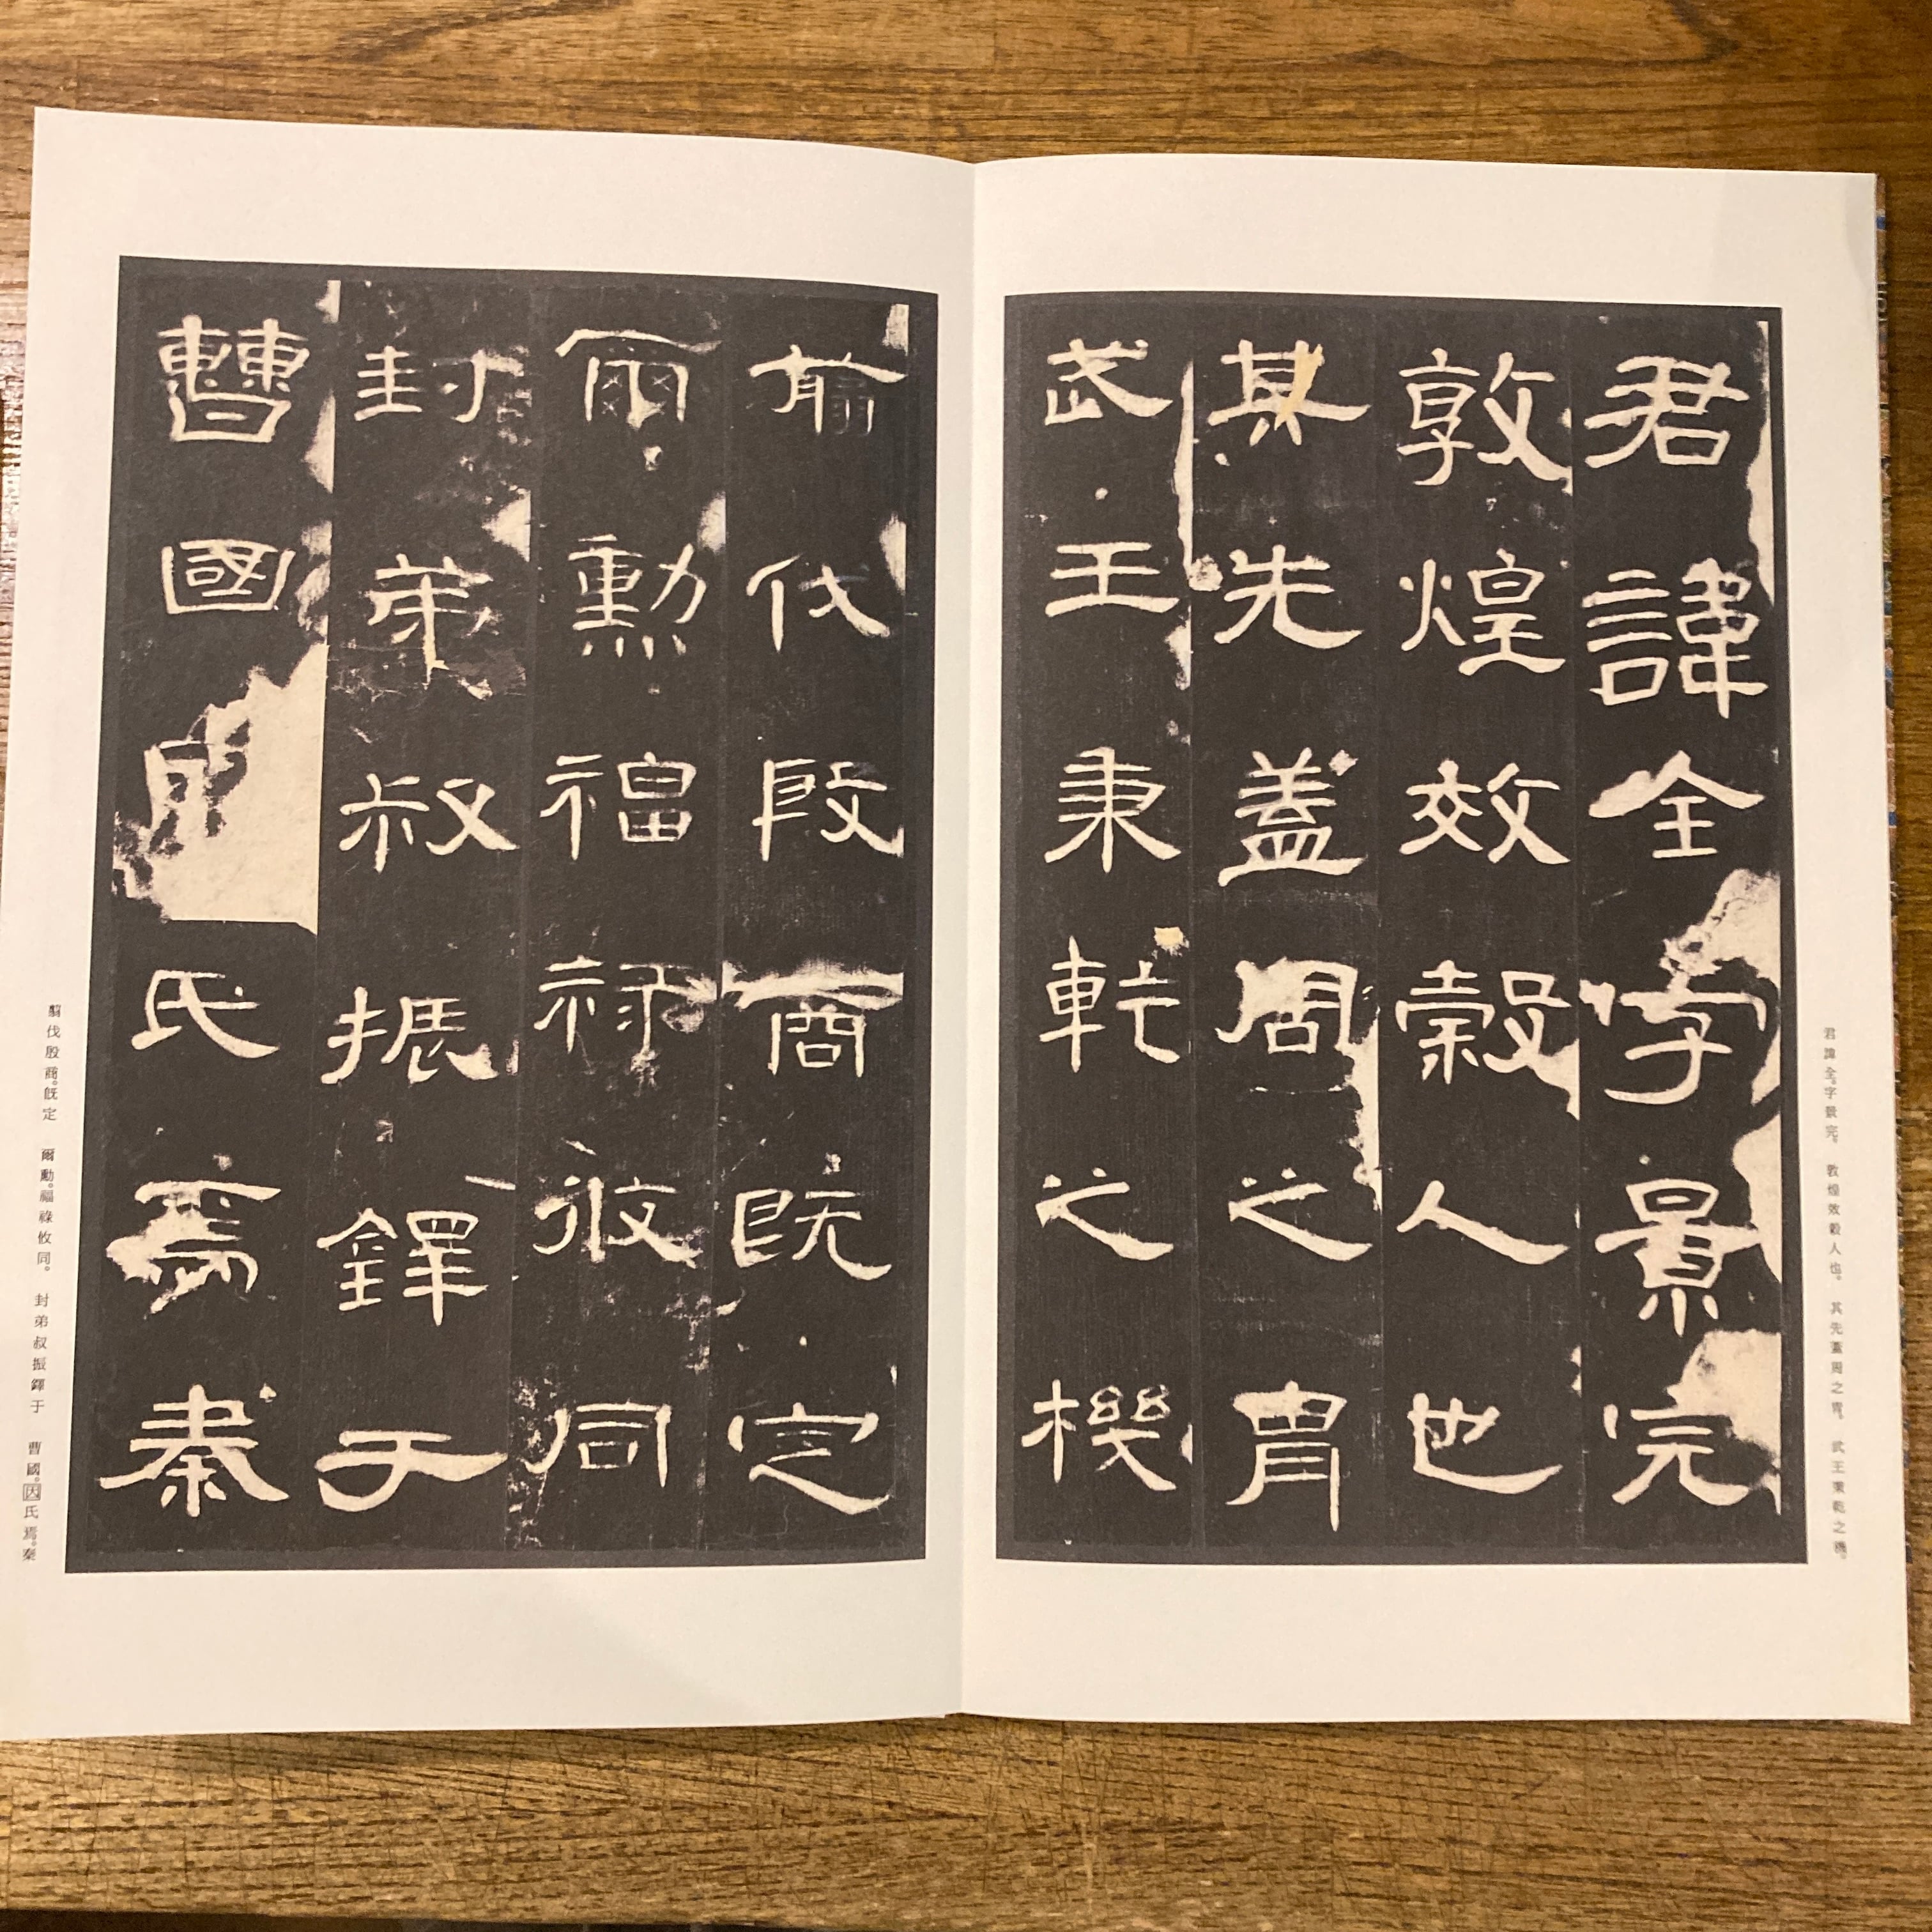 君諱全字景完
敦煌效穀人也
其先蓋周之胄
武王秉乾之機
君諱全。字景完。 敦煌效穀人也。 其先蓋周之冑。 武王秉乾之機。
翦伐殷商既定
爾勳福祿攸同
封弟叔振鐸于
曹國因氏焉秦
翦伐殷商。既定 爾勳。福祿攸同。 封弟叔振鐸于 曹國。因氏焉。秦